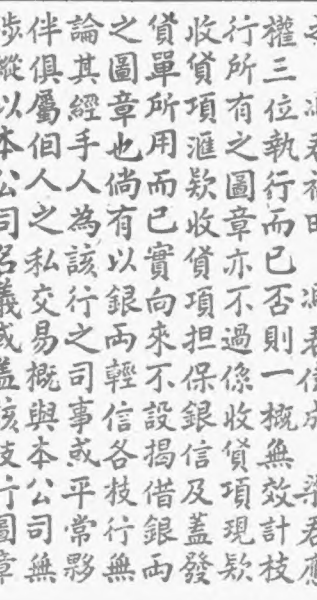 馮君 田 馮君 成 梁君應
權三位執行而已否則一概無效計枝
行所有之圖章亦不過係收貨項現欵
收貨項滙欵收貨項担保銀信及蓋發
貨單所用而已實向來不設揭借銀両
之圖章也倘有以銀両輕信各枝行無
論其經手人為該行之司事或平常夥
伴俱屬佪人之私交易概與本公司無
涉縱以本公司名義或蓋該枝行圖章